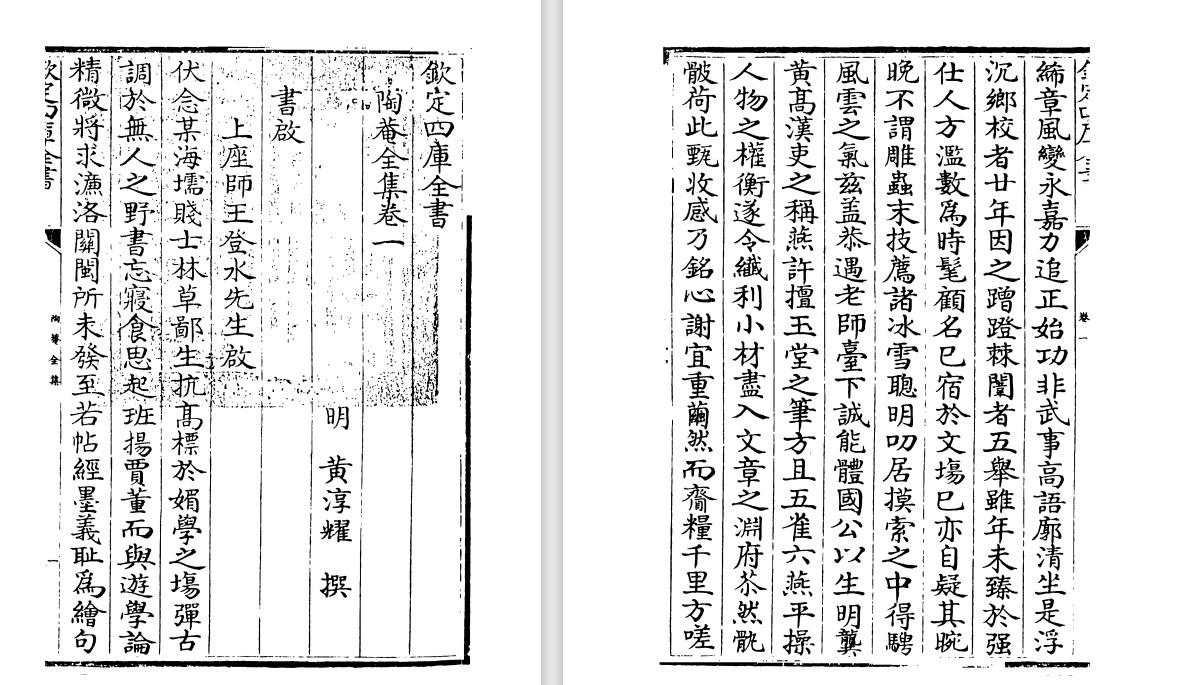 欽定四庫全書
陶菴全集卷一
明 黃淳耀 撰
書啟
上座師王登水先生啟
伏念某海壖賤士林草鄙生抗髙標於媚學之塲彈古
調於無人之野書忘寢食思起班揚賈董而與遊學論
精微將求濂洛闗閩所未發至若帖經墨義耻爲繪句
欽定四庫全書
陶菴全集
一
卷一
絺章風變永嘉力追正始功非武事高語廓清坐是浮
沉鄉校者廿年因之蹭蹬棘闈者五舉雖年未臻於强
仕人方濫數爲時髦顧名已宿於文塲已亦自疑其晼
晚不謂雕蟲末技薦諸冰雪聰明叨居摸索之中得騁
風雲之氣兹盖恭遇老師臺下誠能體國公以生明龔
黄髙漢吏之稱燕許擅玉堂之筆方且五雀六燕平操
人物之權衡遂令纎利小材盡入文章之淵府苶然骫
骳荷此甄收感乃銘心謝宜重繭然而齎糧千里方嗟